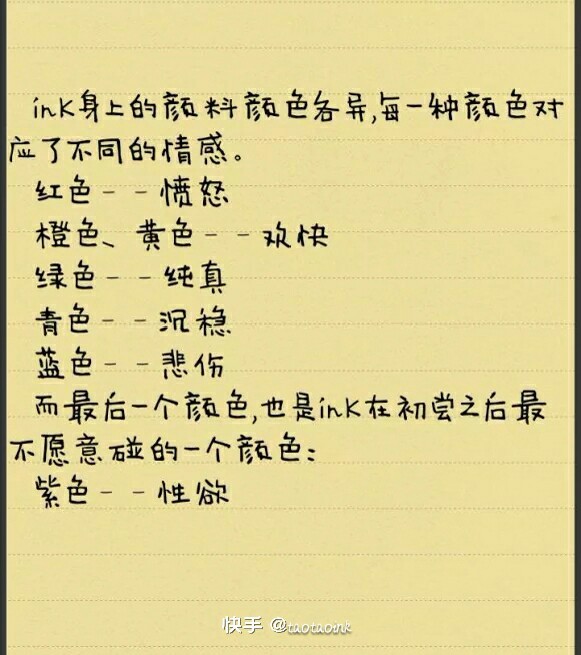 inK身上的颜料颜色各异,每一种颜色对
应了不同的情感。
红色--愤怒
橙色、黄色--欢快
绿色--纯真
青色--沉稳
蓝色--悲伤
而最后一个颜色,也是inK在初尝之后最
不愿意碰的一个颜色:
紫色--性欲
快手 @taotaoink